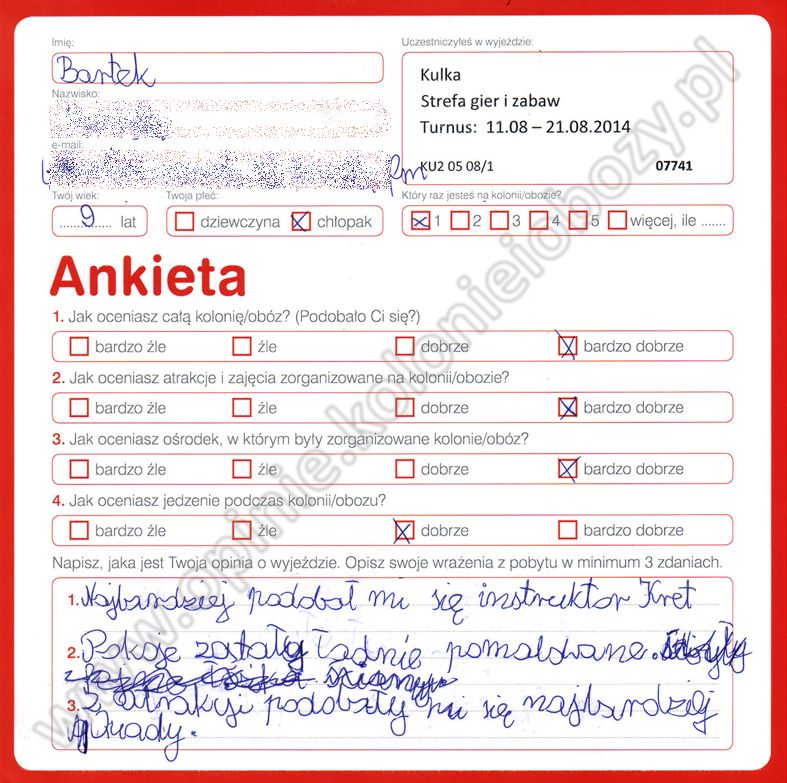 Imię:
Bartek
Uczestniczyłeś w wyjeździe:
Kulka
Strefa gier i zabaw
Turnus: 11.08 – 21.08.2014
KU2 05 08/1 07741
Nazwisko:
e-mail:
Twój wiek:
9 lat
Twoja płeć:
dziewczyna chłopak
Który raz jesteś na kolonii/obozie?
1 2 3 4 5 więcej, ile .......
Ankieta
1. Jak oceniasz całą kolonię/obóz? (Podobało Ci się?)
bardzo źle źle dobrze bardzo dobrze
2. Jak oceniasz atrakcje i zajęcia zorganizowane na kolonii/obozie?
bardzo źle źle dobrze bardzo dobrze
3. Jak oceniasz ośrodek, w którym były zorganizowane kolonie/obóz?
bardzo źle źle dobrze bardzo dobrze
4. Jak oceniasz jedzenie podczas kolonii/obozu?
bardzo źle źle dobrze bardzo dobrze
Napisz, jaka jest Twoja opinia o wyjeździe. Opisz swoje wrażenia z pobytu w minimum 3 zdaniach.
1. Najbardziej podobał mi się instruktor Kret
2. Pokoje zostały ładnie pomalowane.
3. Z atrakcji podobały mi się najbardziej
Quady.
www.opinie.kolonieiobozy.pl